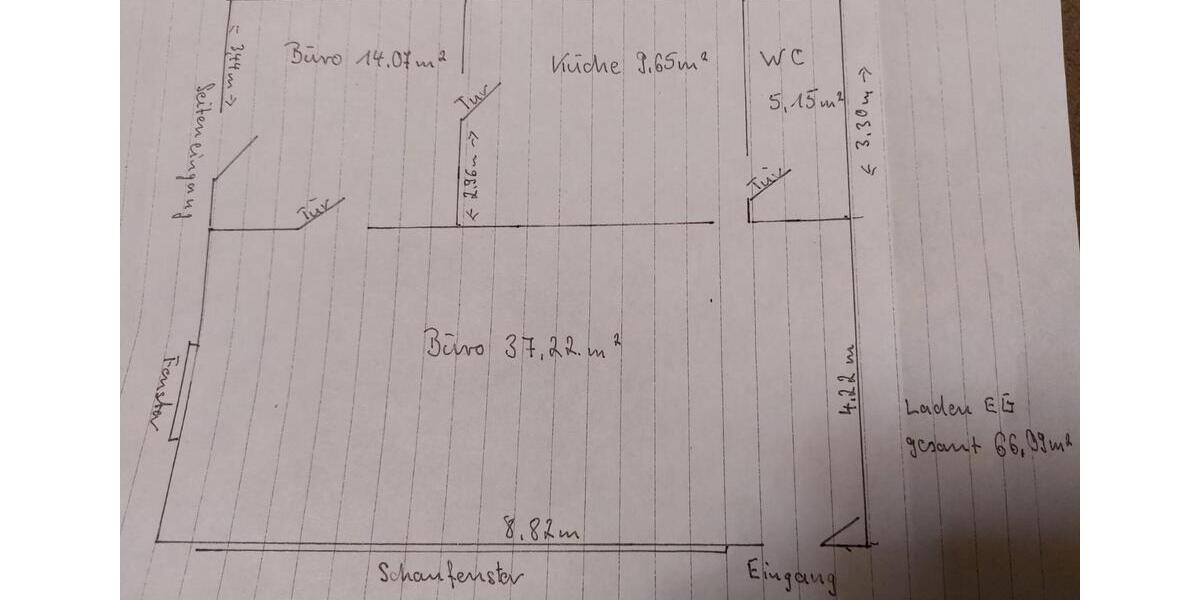 Büro 14.07m²
Küche 9,65m²
WC
5,15m²
← 3,44m →
← 3.30m →
Seiteneingang
Tür
← 2.96m →
Tür
Tür
Büro 37,22.m²
Fenster
4.22 m
Laden EG
gesamt 66,09m²
8,82m
Schaufenster
Eingang